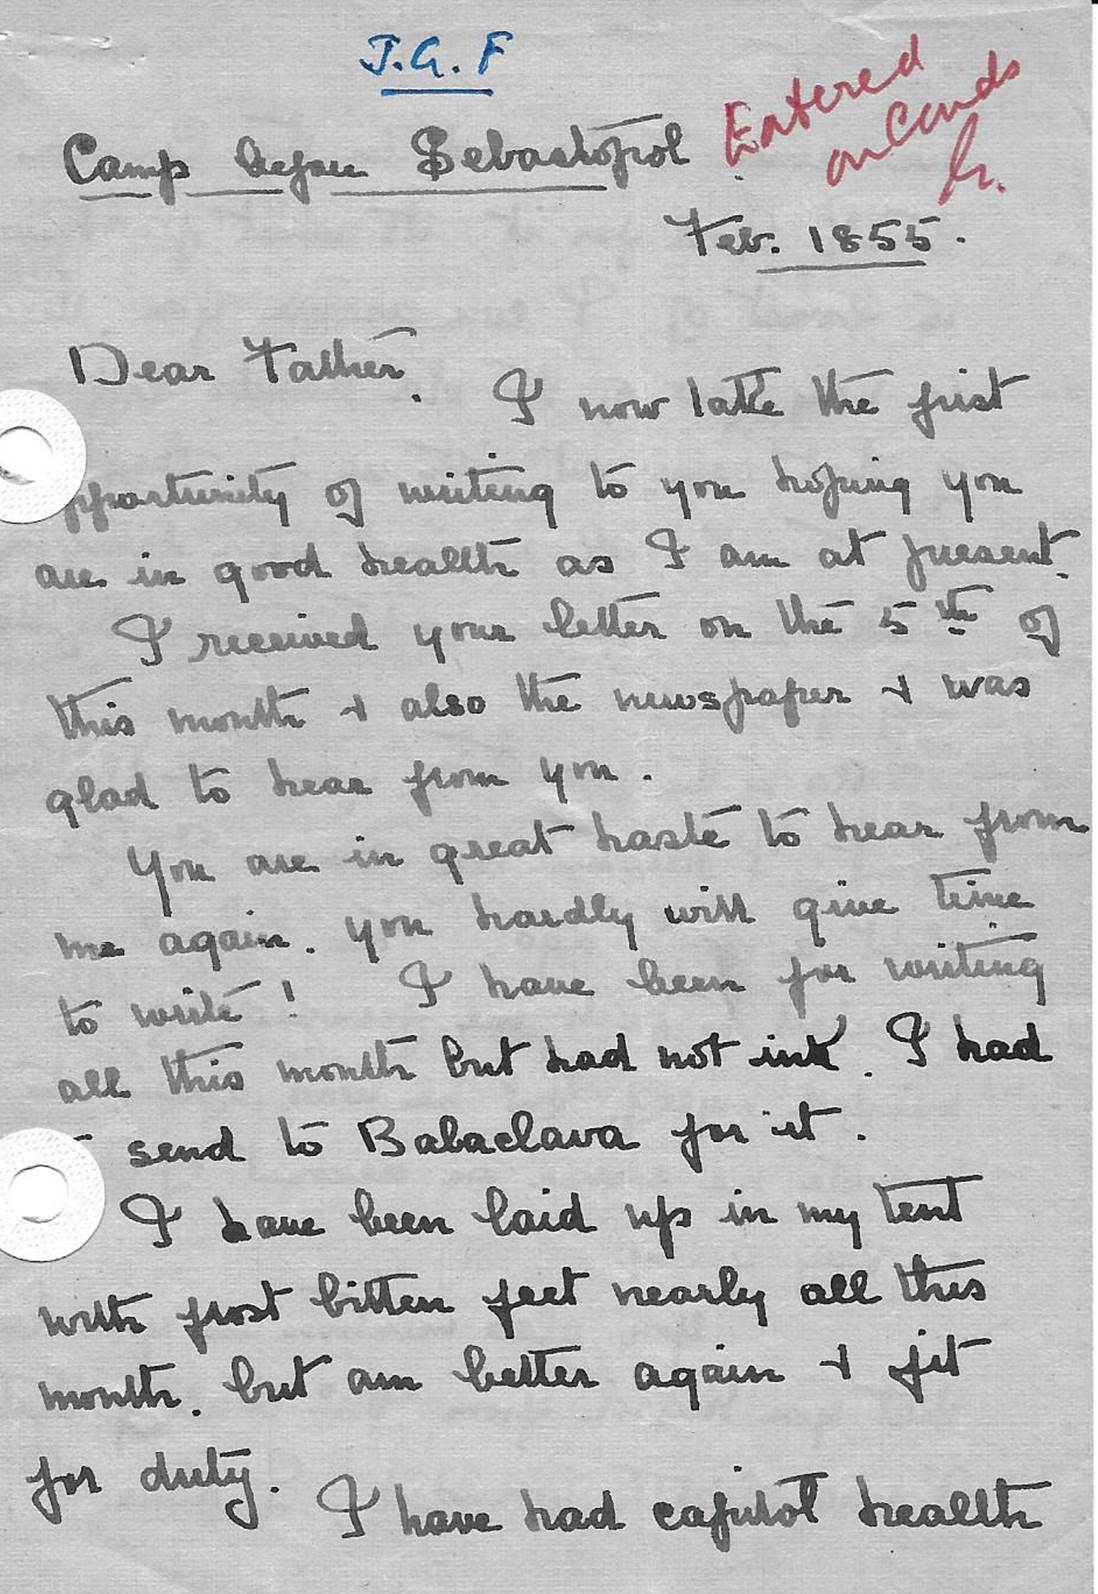 J.G.F
Entered
on Cards
Camp before Sebastopol
Feb. 1855.
Dear Father.
I now take the first
pportunity of writing to you hoping you
are in good health as I am at present.
I received your letter on the 5th of
this month + also the newspaper + was
glad to hear from you.
You are in great haste to hear from
me again. you hardly will give time
to write! I have been for writing
all this month but had not ink. I had
send to Balaclava for it.
I have been laid up in my tent
with frost bitten feet nearly all this
month. but am better again + fit
for duty.
I have had capitol health